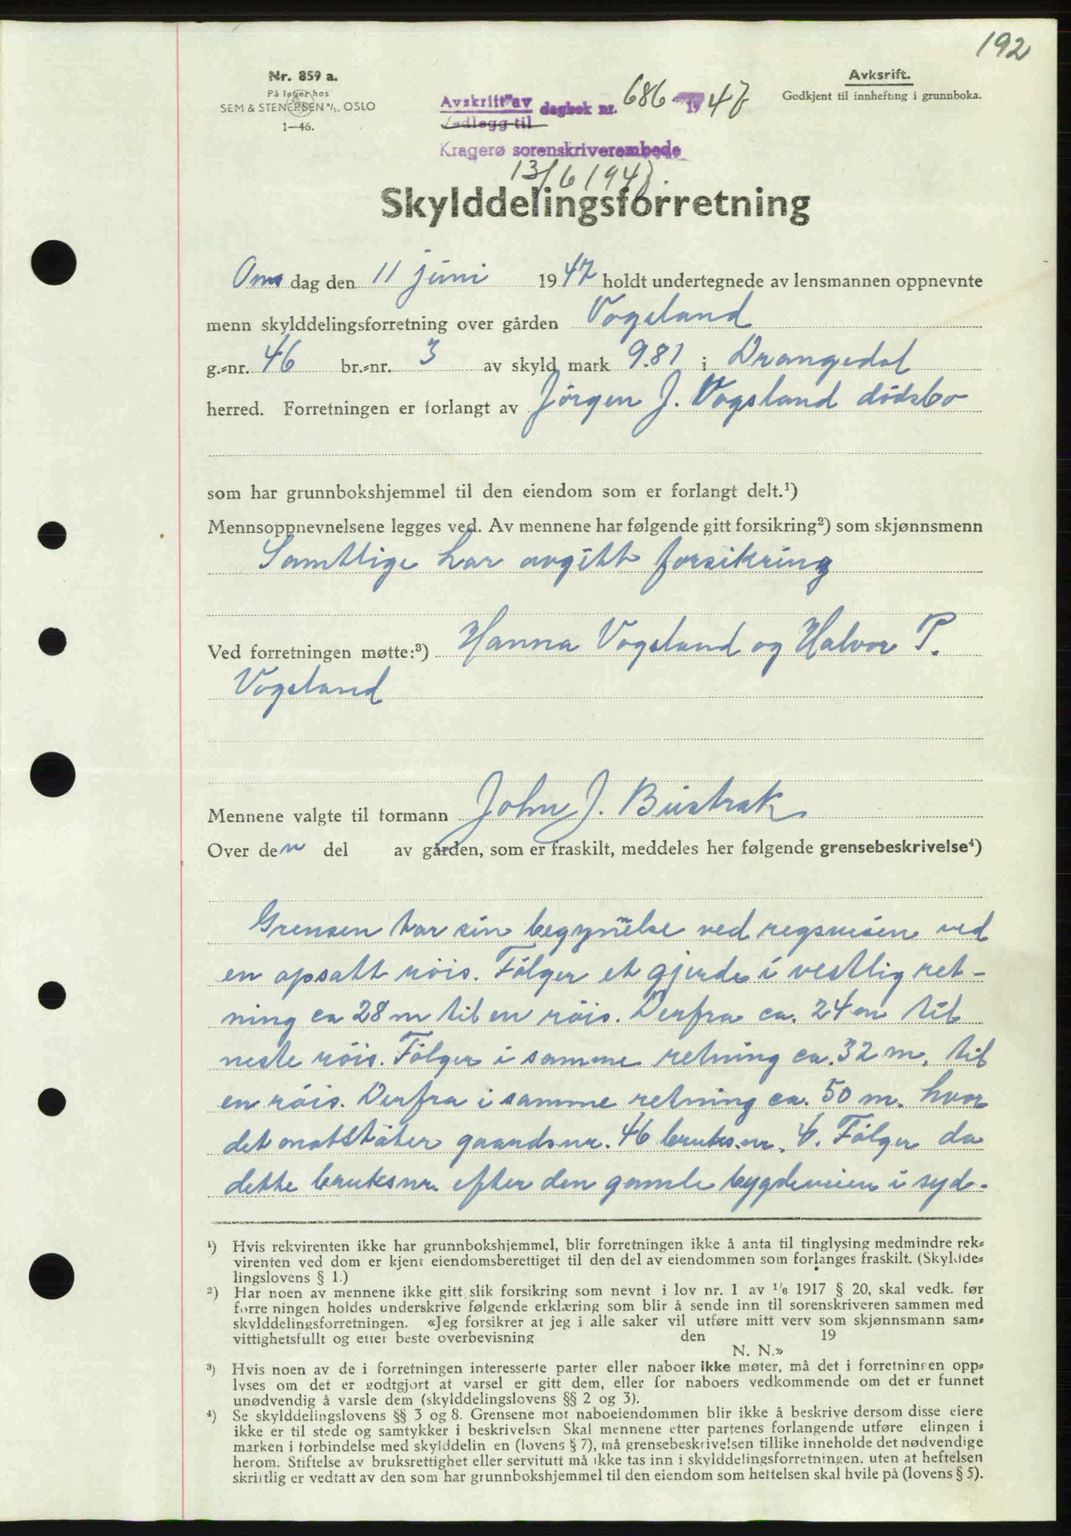 192
Nr. 859 a.
På lager hos
SEM & STENERSEN A/S, OSLO
1—46.
Avskrift av dagbok nr. 686 1947
Vedlegg til
Kragerø sorenskriverembede
13/6 1947.
Avksrift.
Godkjent til innhefting i grunnboka.
Skylddelingsforretning
Ons dag den 11 juni 1947 holdt undertegnede av lensmannen oppnevnte
menn skylddelingsforretning over gården Vogsland
g.-nr. 46 br.-nr. 3 av skyld mark 9.81 i Drangedal
herred. Forretningen er forlangt av Jörgen J. Vogsland dödsbo
som har grunnbokshjemmel til den eiendom som er forlangt delt.¹)
Mennsoppnevnelsene legges ved. Av mennene har følgende gitt forsikring²) som skjønnsmenn
Samtlige har avgitt forsikring
Ved forretningen møtte:³) Hanna Vogsland og Halvor P.
Vogsland
Mennene valgte til formann John J. Bustrak
Over den del av gården, som er fraskilt, meddeles her følgende grensebeskrivelse⁴)
Grensen tar sin begynnelse ved regsveien ved
en opsatt röis. Fölger et gjerde i vestlig ret-
ning ca 28 m til en röis. Derfra ca. 24 m til
neste röis. Fölger i samme retning ca. 32 m, til
en röis. Derfra i samme retning ca. 50 m. hvor
det motstöter gaardsnr. 46 bruks.nr. 4. Fölger da
dette bruksnr. efter den gamle bygdeveien i syd-
¹) Hvis rekvirenten ikke har grunnbokshjemmel, blir forretningen ikke å anta til tinglysing medmindre rek-
virenten ved dom er kjent eiendomsberettiget til den del av eiendommen som forlanges fraskilt. (Skyldde-
lingslovens § 1.)
²) Har noen av mennene ikke gitt slik forsikring som nevnt i lov nr. 1 av 1/6 1917 § 20, skal vedk. før
forretningen holdes underskrive følgende erklæring som blir å sende inn til sorenskriveren sammen med
skylddelingsforretningen. «Jeg forsikrer at jeg i alle saker vil utføre mitt verv som skjønnsmann sam-
vittighetsfullt og etter beste overbevisning den 19
N. N.»
³) Hvis noen av de i forretningen interesserte parter eller naboer ikke møter, må det i forretningen opp-
lyses om det er godtgjort at varsel er gitt dem, eller for naboers vedkommende om det er funnet
unødvendig å varsle dem (skylddelingslovens §§ 2 og 3).
⁴) Se skylddelingslovens §§ 3 og 8. Grensene mot naboeiendommen blir ikke å beskrive dersom disse eiere
ikke er til stede og samtykker i beskrivelsen Skal mennene etter partenes forlangende utføre elingen i
marken i forbindelse med skylddelin en (lovens § 7), må grensebeskrivelsen tillike inneholde det nødvendige
herom. Stiftelse av bruksrettighet eller servitutt må ikke tas inn i skylddelingsforretningen, uten at heftelsen
skriftlig er vedtatt av den som har grunnbokshjemmel til den eiendom som heftelsen skal hvile på (lovens § 5).